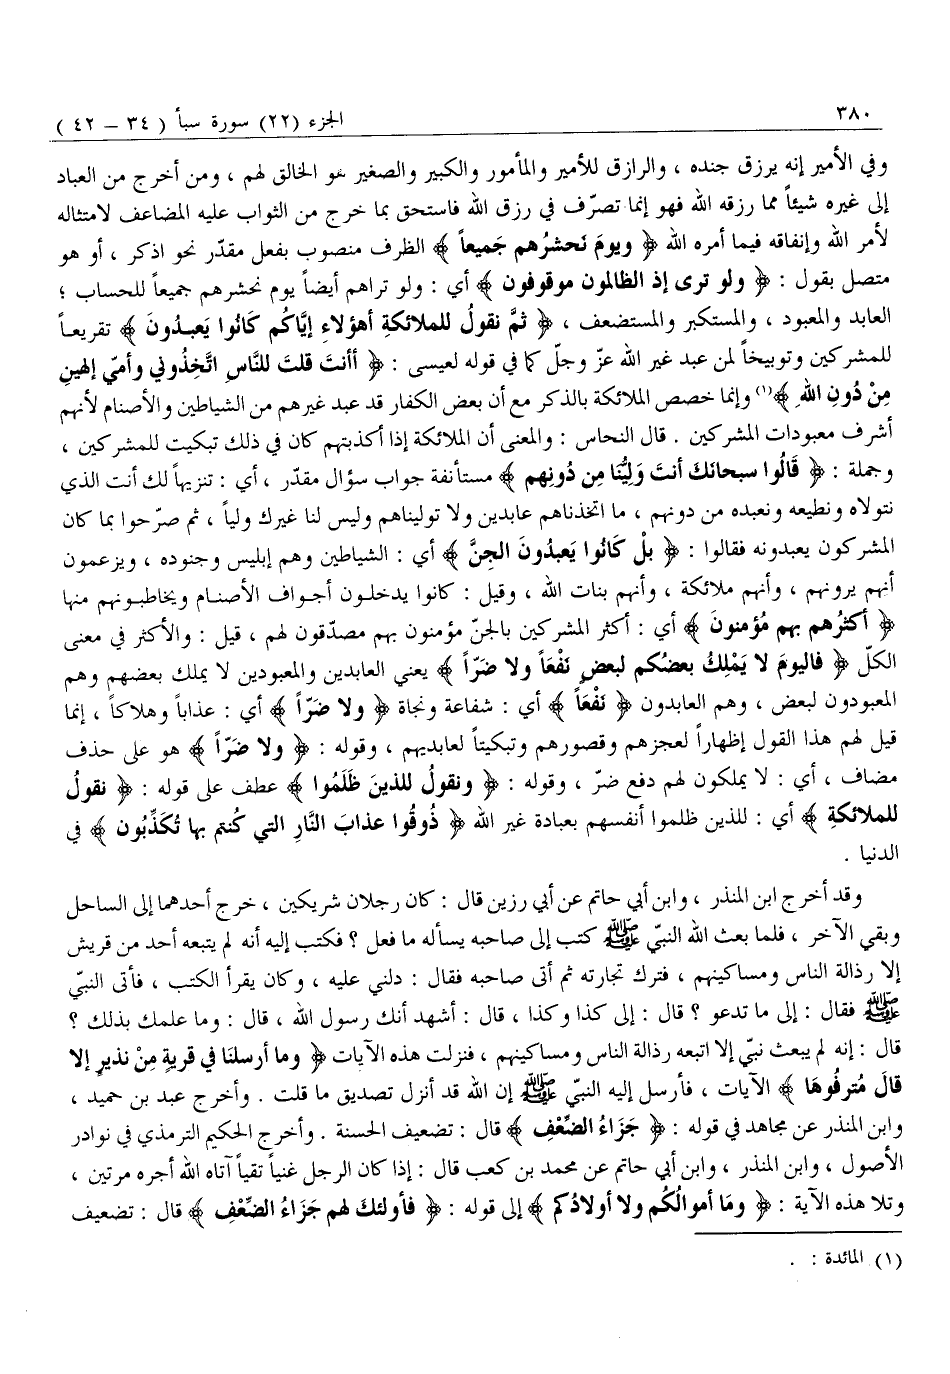 ٣٨٠
الجزء (٢٢) سورة سبأ ( ٣٤ – ٤٢ )
وفي الأمير إنه يرزق جنده ، والرازق للأمير والمأمور والكبير والصغير هو الخالق لهم ، ومن أخرج من العباد
إلى غيره شيئاً مما رزقه الله فهو إنما تصرّف في رزق الله فاستحق بما خرج من الثواب عليه المضاعف لامتثاله
لأمر الله وإنفاقه فيما أمره الله ﴿ ويومَ نَحشرُهم جَميعاً ﴾ الظرف منصوب بفعل مقدّر نحو اذكر ، أو هو
متصل بقول : ﴿ ولو ترى إذ الظالمون موقوفون ﴾ أي : ولو تراهم أيضاً يوم نحشرهم جميعاً للحساب ؛
العابد والمعبود ، والمستكبر والمستضعف ، ﴿ ثمَّ نقولُ للملائكةِ أهؤلاءِ إيَّاكُم كَانُوا يَعبدُونَ ﴾ تقريعـاً
للمشركين وتوبيخاً لمن عبد غير الله عزّ وجلّ كما في قوله لعيسى : ﴿ أأنتَ قلتَ للنَّاسِ اتَّخِذُوني وأمّي إلهينِ
مِنْ دُونِ اللهِ ﴾(١) وإنما خصص الملائكة بالذكر مع أن بعض الكفار قد عبد غيرهم من الشياطين والأصنام لأنهم
أشرف معبودات المشركين . قال النحاس : والمعنى أن الملائكة إذا أكذبتهم كان في ذلك تبكيت للمشركين ،
وجملة : ﴿ قَالُوا سبحانَكَ أنتَ وَليُّنَا مِن دُونِهم ﴾ مستأنفة جواب سؤال مقدّر ، أي : تنزيهاً لك أنت الذي
نتولاه ونطيعه ونعبده من دونهم ، ما اتخذناهم عابدين ولا توليناهم وليس لنا غيرك ولياً ، ثم صرّحوا بما كان
المشركون يعبدونه فقالوا : ﴿ بلْ كَانُوا يَعبدُونَ الجنَّ ﴾ أي : الشياطين وهم إبليس وجنوده ، ويزعمون
أنهم يرونهم ، وأنهم ملائكة ، وأنهم بنات الله ، وقيل : كانوا يدخلـون أجـواف الأصنـام ويخاطبـونهم منها
﴿ أكثرُهم بهم مُؤمنونَ ﴾ أي : أكثر المشركين بالجنّ مؤمنون بهم مصدّقون لهم ، قيل : والأكثر في معنى
الكلّ ﴿ فاليومَ لا يَمْلِكُ بعضُكم لبعضٍ نَفْعَاً ولا ضَرّاً ﴾ يعني العابدين والمعبودين لا يملك بعضهم وهم
المعبودون لبعض ، وهم العابدون ﴿ نَفْعاً ﴾ أي : شفاعة ونجاة ﴿ ولا ضَرّاً ﴾ أي : عذاباً وهلاكاً ، إنما
قيل لهم هذا القول إظهاراً لعجزهم وقصورهم وتبكيتاً لعابديهم ، وقوله : ﴿ ولا ضَرّاً ﴾ هو على حذف
مضاف ، أي : لا يملكون لهم دفع ضرّ ، وقوله : ﴿ ونقولُ للذينَ ظَلَمُوا ﴾ عطف على قوله : ﴿ نقولُ
للملائكةِ ﴾ أي : للذين ظلموا أنفسهم بعبادة غير الله ﴿ ذُوقُوا عذابَ النَّارِ التي كُنتم بها تُكَذِّبُون ﴾ في
الدنيا .
وقد أخرج ابن المنذر ، وابن أبي حاتم عن أبي رزين قال : كان رجلان شريكين ، خرج أحدهما إلى الساحل
وبقي الآخر ، فلما بعث الله النبيّ ﷺ كتب إلى صاحبه يسأله ما فعل ؟ فكتب إليه أنه لم يتبعه أحد من قريش
إلا رذالة الناس ومساكينهم ، فترك تجارته ثم أتى صاحبه فقال : دلني عليه ، وكان يقرأ الكتب ، فأتى النبيّ
ﷺ فقال : إلى ما تدعو ؟ قال : إلى كذا وكذا ، قال : أشهد أنك رسول الله ، قال : وما علمك بذلك ؟
قال : إنه لم يبعث نبيّ إلا اتبعه رذالة الناس ومساكينهم ، فنزلت هذه الآيات ﴿ وما أرسلنَا في قريةٍ مِنْ نذيرٍ إلا
قالَ مُترفُوهَا ﴾ الآيات ، فأرسل إليه النبيّ ﷺ إن الله قد أنزل تصديق ما قلت . وأخرج عبد بن حميد ،
وابن المنذر عن مجاهد في قوله : ﴿ جَزَاءُ الضِّعْفِ ﴾ قال : تضعيف الحسنة . وأخرج الحكيم الترمذي في نوادر
الأصول ، وابن المنذر ، وابن أبي حاتم عن محمد بن كعب قال : إذا كان الرجل غنياً تقياً آتاه الله أجره مرتين ،
وتلا هذه الآية : ﴿ ومَا أموالُكُم ولا أولادُكم ﴾ إلى قوله : ﴿ فأولئكَ لهم جَزَاءُ الضِّعْفِ ﴾ قال : تضعيف
(١) المائدة : .